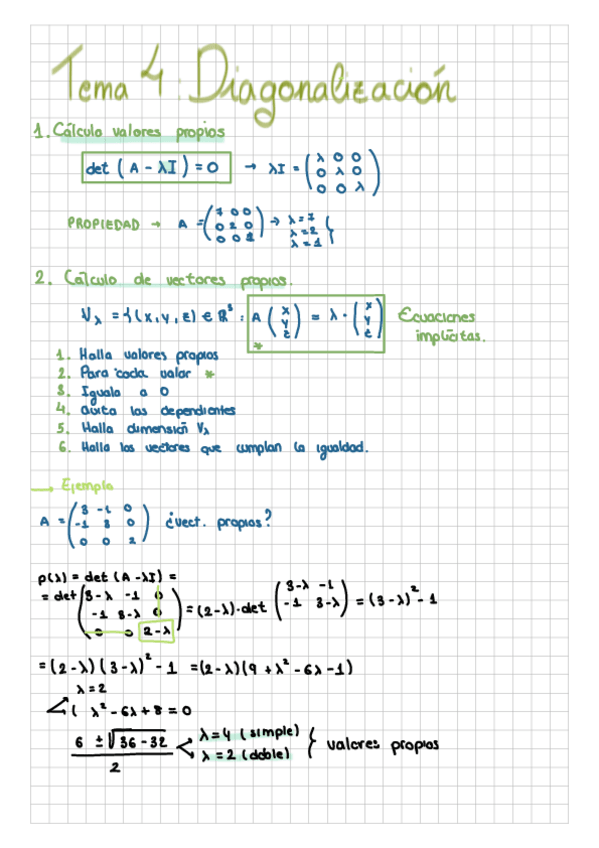 Tema 4: Diagonalización
1. Cálculo valores propios
det (A - λI) = 0 → λI = (λ 0 0
0 λ 0
0 0 λ)
PROPIEDAD → A = (7 0 0
0 2 0
0 0 1) → λ = 7
λ = 2
λ = 1 }
2. Cálculo de vectores propios.
Vλ = {(x, y, z) ∈ ℝ³ : A (x y z) = λ · (x y z) Ecuaciones
* implícitas.
1. Halla valores propios
2. Para cada valor *
3. Iguala a 0
4. Quita las dependientes
5. Halla dimensión Vλ
6. Halla los vectores que cumplan la igualdad.
→ Ejemplo
A = (3 -1 0
-1 3 0
0 0 2) ¿vect. propios?
p(λ) = det (A - λI) =
= det (3-λ -1 0
-1 3-λ 0
0 0 2-λ) = (2-λ)·det (3-λ -1
-1 3-λ) = (3-λ)² - 1
= (2-λ)(3-λ)² - 1 = (2-λ)(9 + λ² - 6λ - 1)
λ = 2
( λ² - 6λ + 8 = 0
6 ± √36 - 32
2
λ = 4 (simple)
λ = 2 (doble) } valores propios